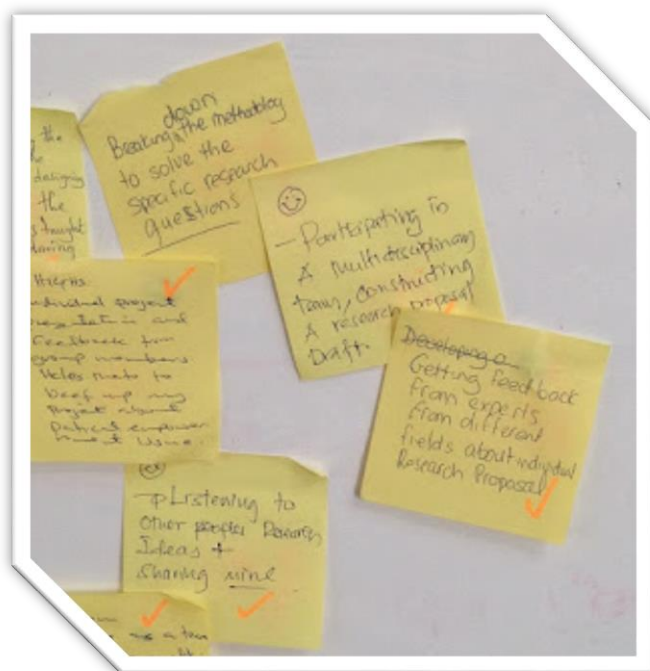 the
designing
the
taught
down
Breaking the methodology
to solve the
specific research
questions
— Participating in
A multidisciplinary
team, constructing
A research proposal
Draft.
individual project
and
Feedback from
group members.
to
beef up my
project about
patient
Developing a
Getting feedback
from experts
from different
fields about individual
Research Proposal
Listening to
other people Research
Ideas +
sharing mine
as a team